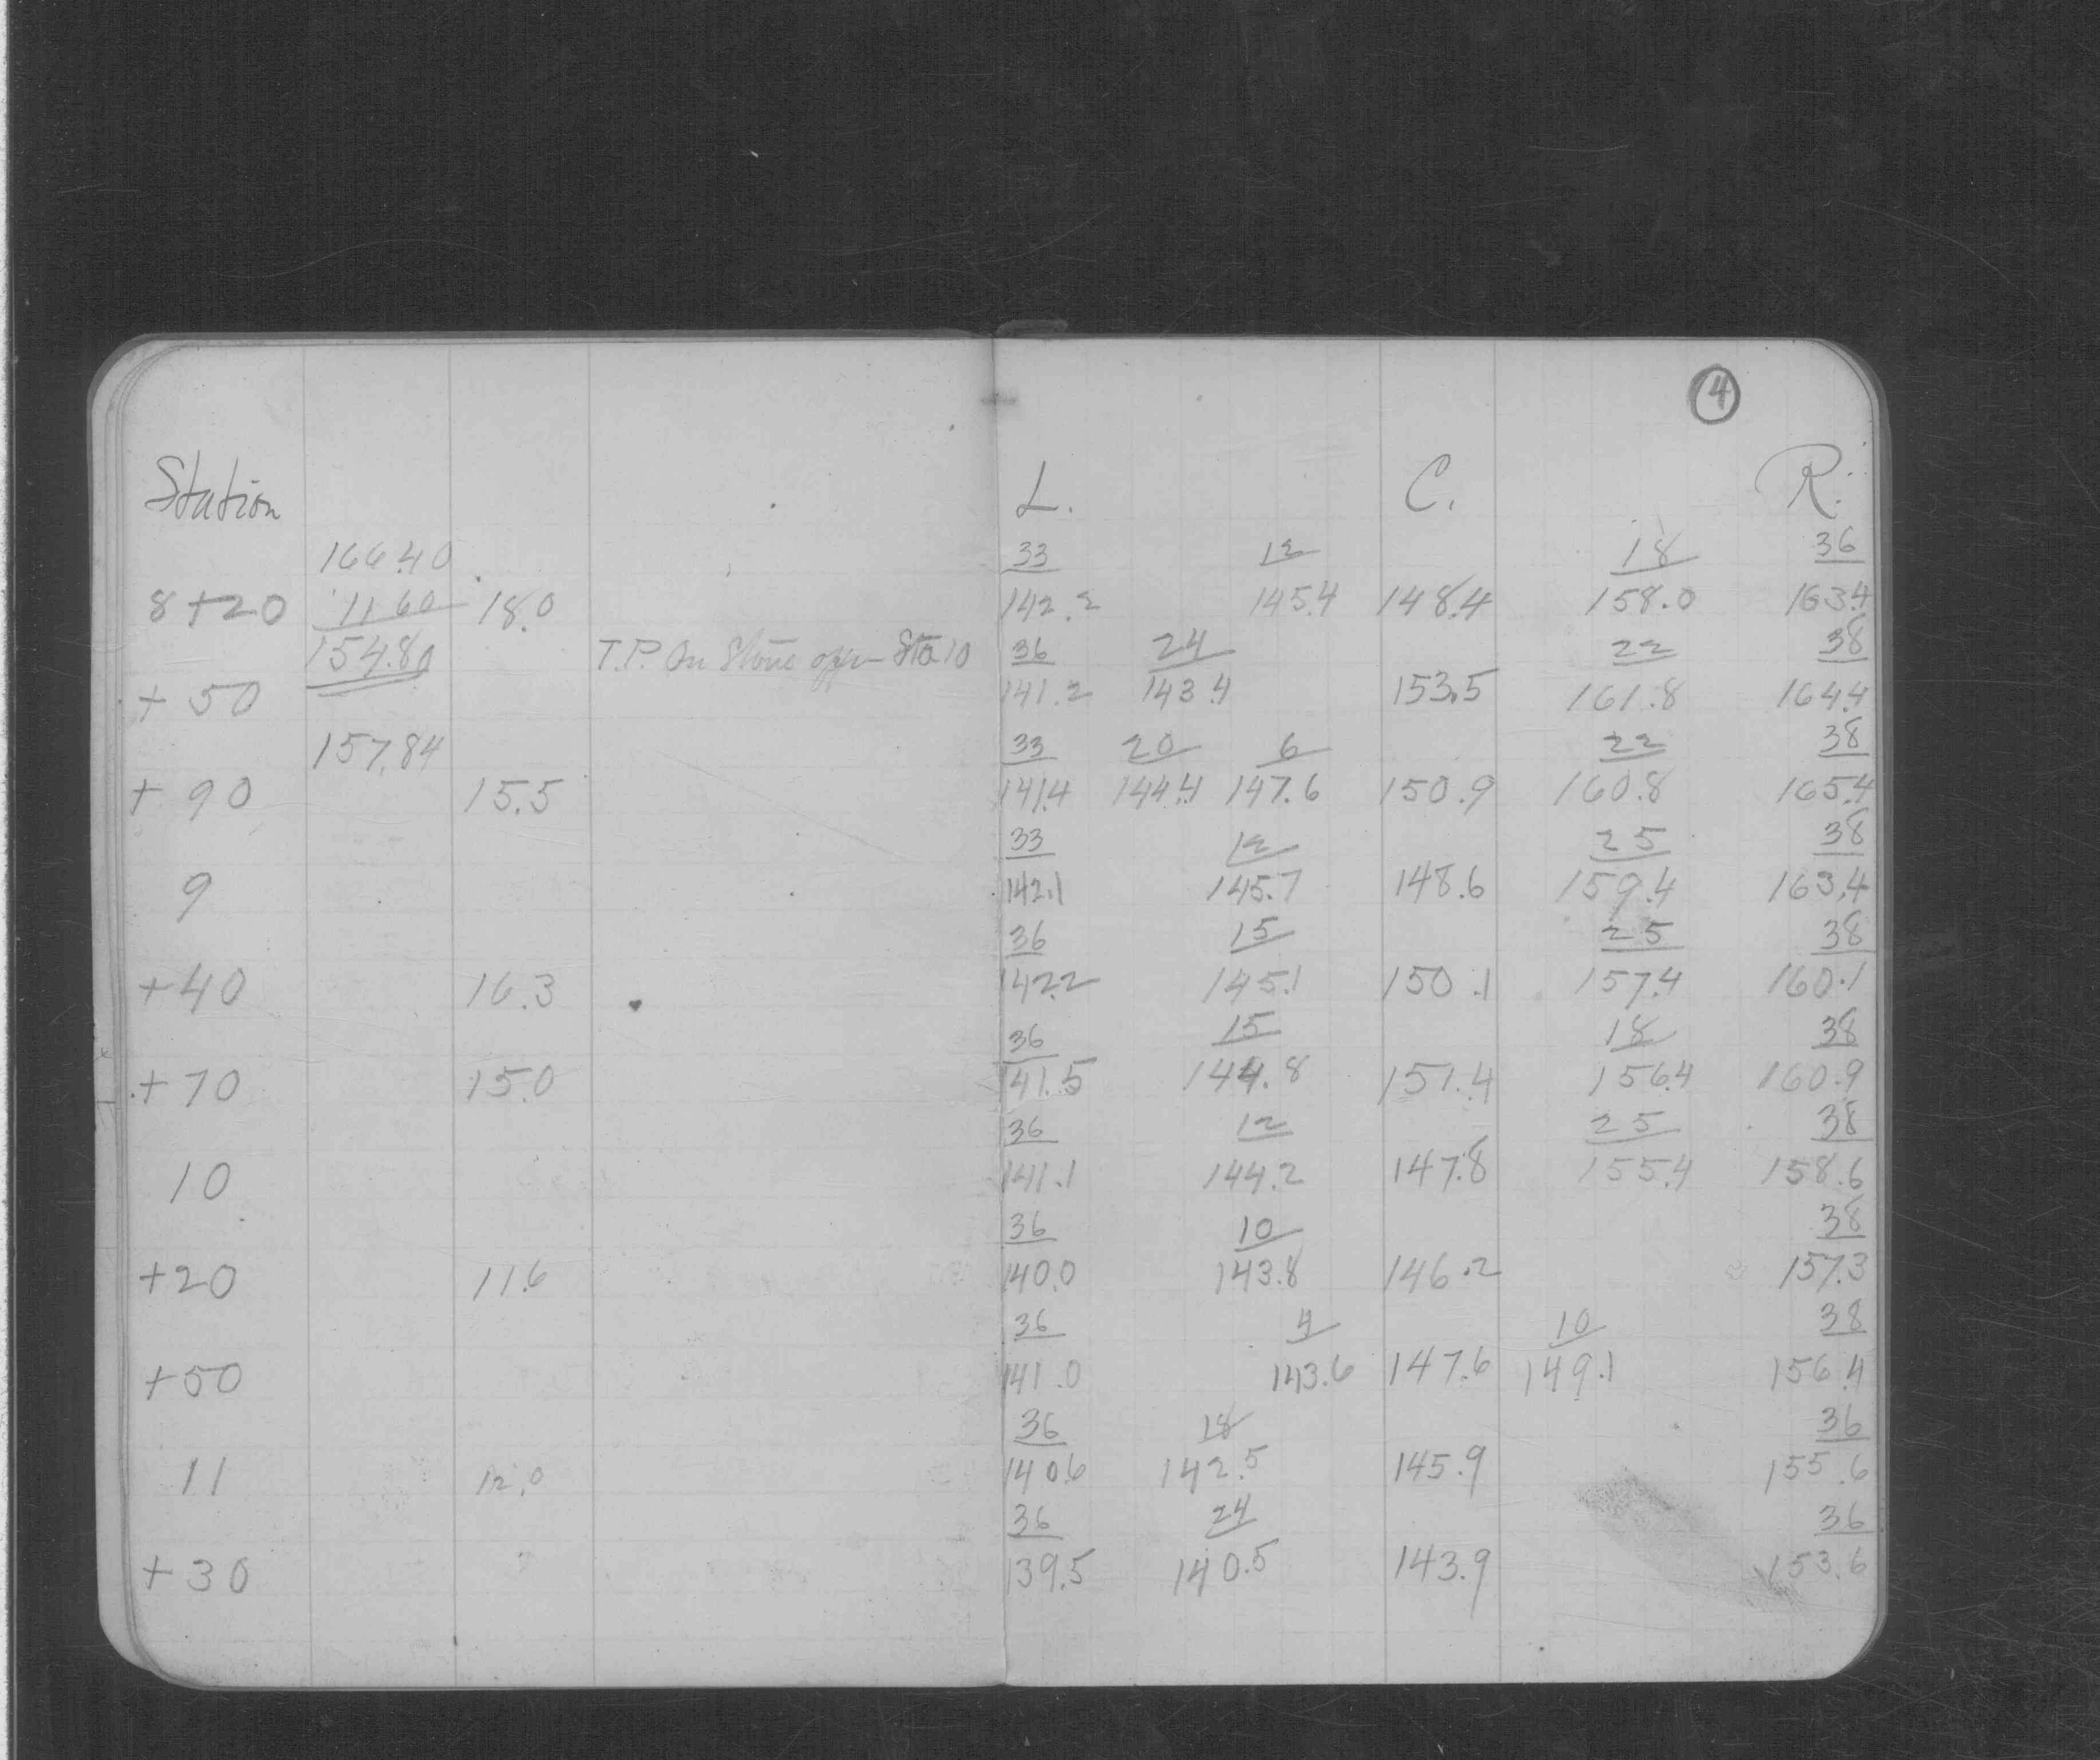 4
Station L. C. R.
166.40 33 12 18 36
8+20 11.60 18.0 142.2 145.4 148.4 158.0 163.4
154.80 T.P. On Stone Sta 10 36 24 22 38
+50 141.2 143.4 153.5 161.8 164.4
157.84 33 20 6 22 38
+90 15.5 141.4 144.4 147.6 150.9 160.8 165.4
33 12 25 38
9 142.1 145.7 148.6 159.4 163.4
36 15 25 38
+40 16.3 142.2 145.1 150.1 157.4 160.1
36 15 18 38
+70 15.0 141.5 144.8 151.4 156.4 160.9
36 12 25 38
10 141.1 144.2 147.8 155.4 158.6
36 10 38
+20 11.6 140.0 143.8 146.2 157.3
36 4 10 38
+50 141.0 143.6 147.6 149.1 156.4
36 18 36
11 12.0 140.6 142.5 145.9 155.6
36 24 36
+30 139.5 140.5 143.9 153.6